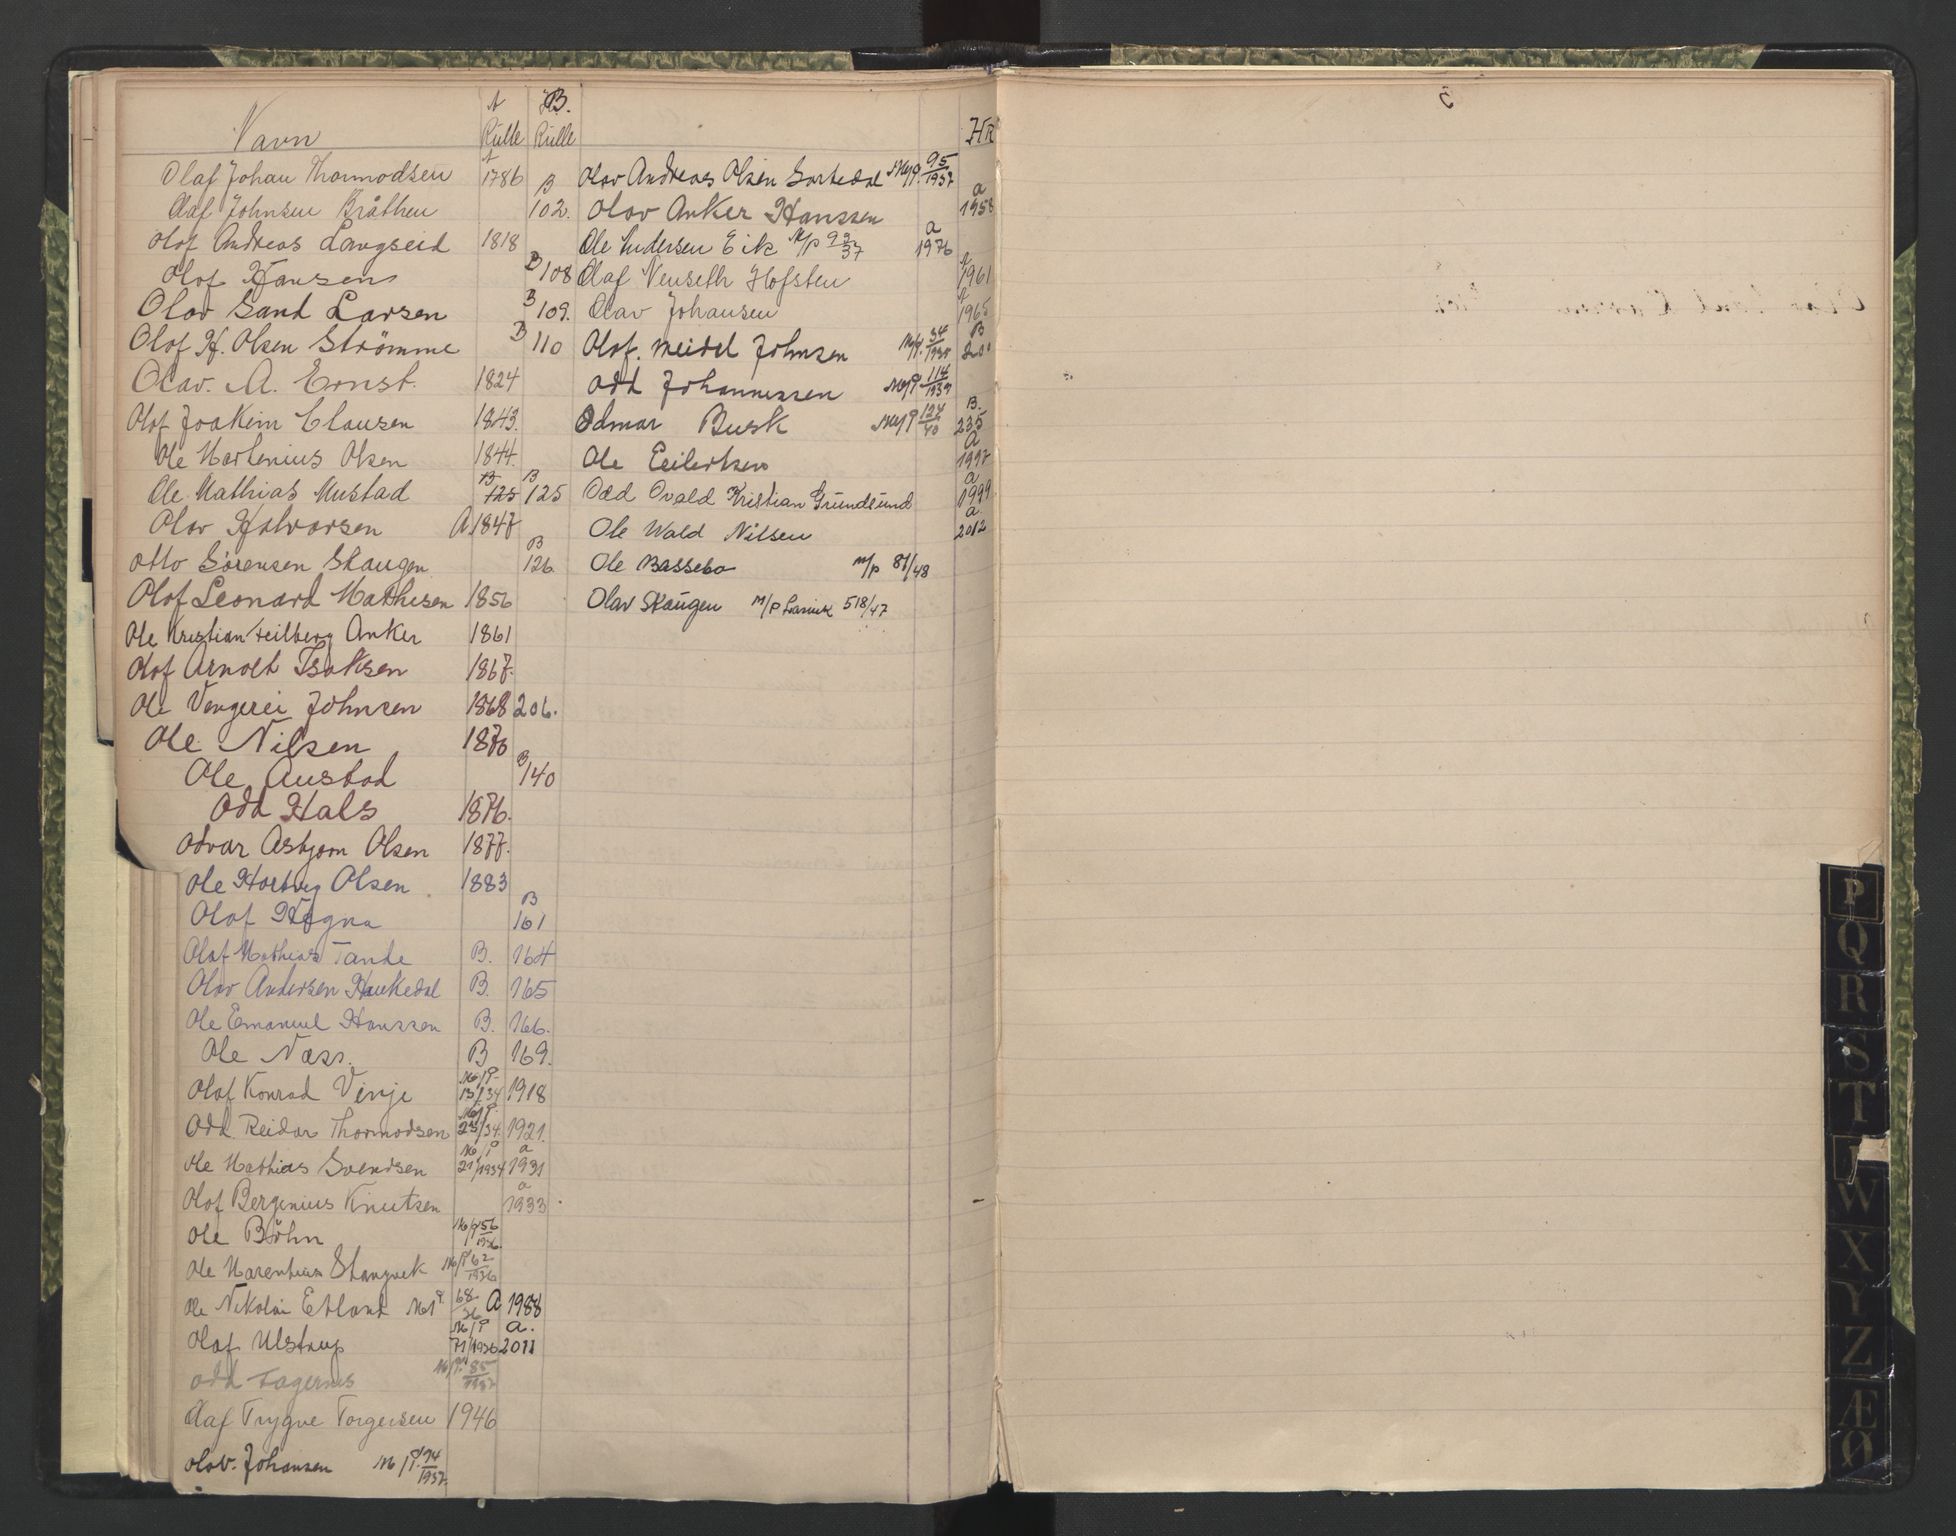 A B.
Navn Rulle Rulle HR
Olaf Johan Thormodsen A 1786
Olaf Johnsen Bråthen B 102.
Olof Andreas Langseid 1818
Olof Hansen B 108
Olav Sand Larsen B 109.
Olof H. Olsen Strømme B 110
Olav. A. Ernst. 1824
Olof Joakim Clausen 1843.
Ole Martenius Olsen 1844.
Ole Mathias Mustad B 125 B 125
Olav Halvorsen A 1847
Otto Sørensen Skaugen B 126.
Olof Leonard Mathisen 1856
Ole Kristian Heilberg Anker 1861
Olof Arnolt Isaksen 1867.
Ole Vengerei Johnsen 1868 206.
Ole Nilsen 1870
Ole Austad B 140
Odd Hals 1876.
Odvar Asbjørn Olsen 1877.
Ole Hartvig Olsen 1883
Olof Høgna B 161
Olaf Mathias Tande B. 164
Olav Andersen Haukedal B. 165
Ole Emanuel Hanssen B. 166.
Ole Næss. B 169.
Olaf Konrad Vinje M/P 13/34 1918
Odd Reidar Thormodsen M/P 25/34. 1921.
Ole Mathias Svendsen M/P 21/1934 a 1931
Olof Bergenius Knutsen a 1933
Ole Bøhn M/P 56/1936.
Ole Marentius Stangvik M/P 62/1936
Ole Nikolai Etland M/P 68/36 A 1988
Olaf Ulstrup M/P 71/1936 a. 2011
Odd Fagernes M/P. 85/1937
Olaf Trygve Torgersen 1946
Olav. Johansen M/P. 94/1937.
Olav Andreas Olsen M/P. 95/1937
Olav Anker Hanssen a 1958
Ole Andersen Eik M/P 99/37 a 1976
Olaf Venseth Hofsten A 1961
Olav Johansen A 1965
Olof. Meidel Johnsen M/P. 34/1935 B
Odd Johannessen M/P 114/1939
Odmar Busk M/P 124/40 B. 235
Ole Eilertsen a 1997
Odd Ovald Kristian Grundsund a 1999
Ole Wald Nilsen a. 2012
Ole Bassebo M/P 81/48
Olav Skaugen M/P Larvik 518/47
P
Q
R
S
T
W
X
Y
Z
Æ
Ø